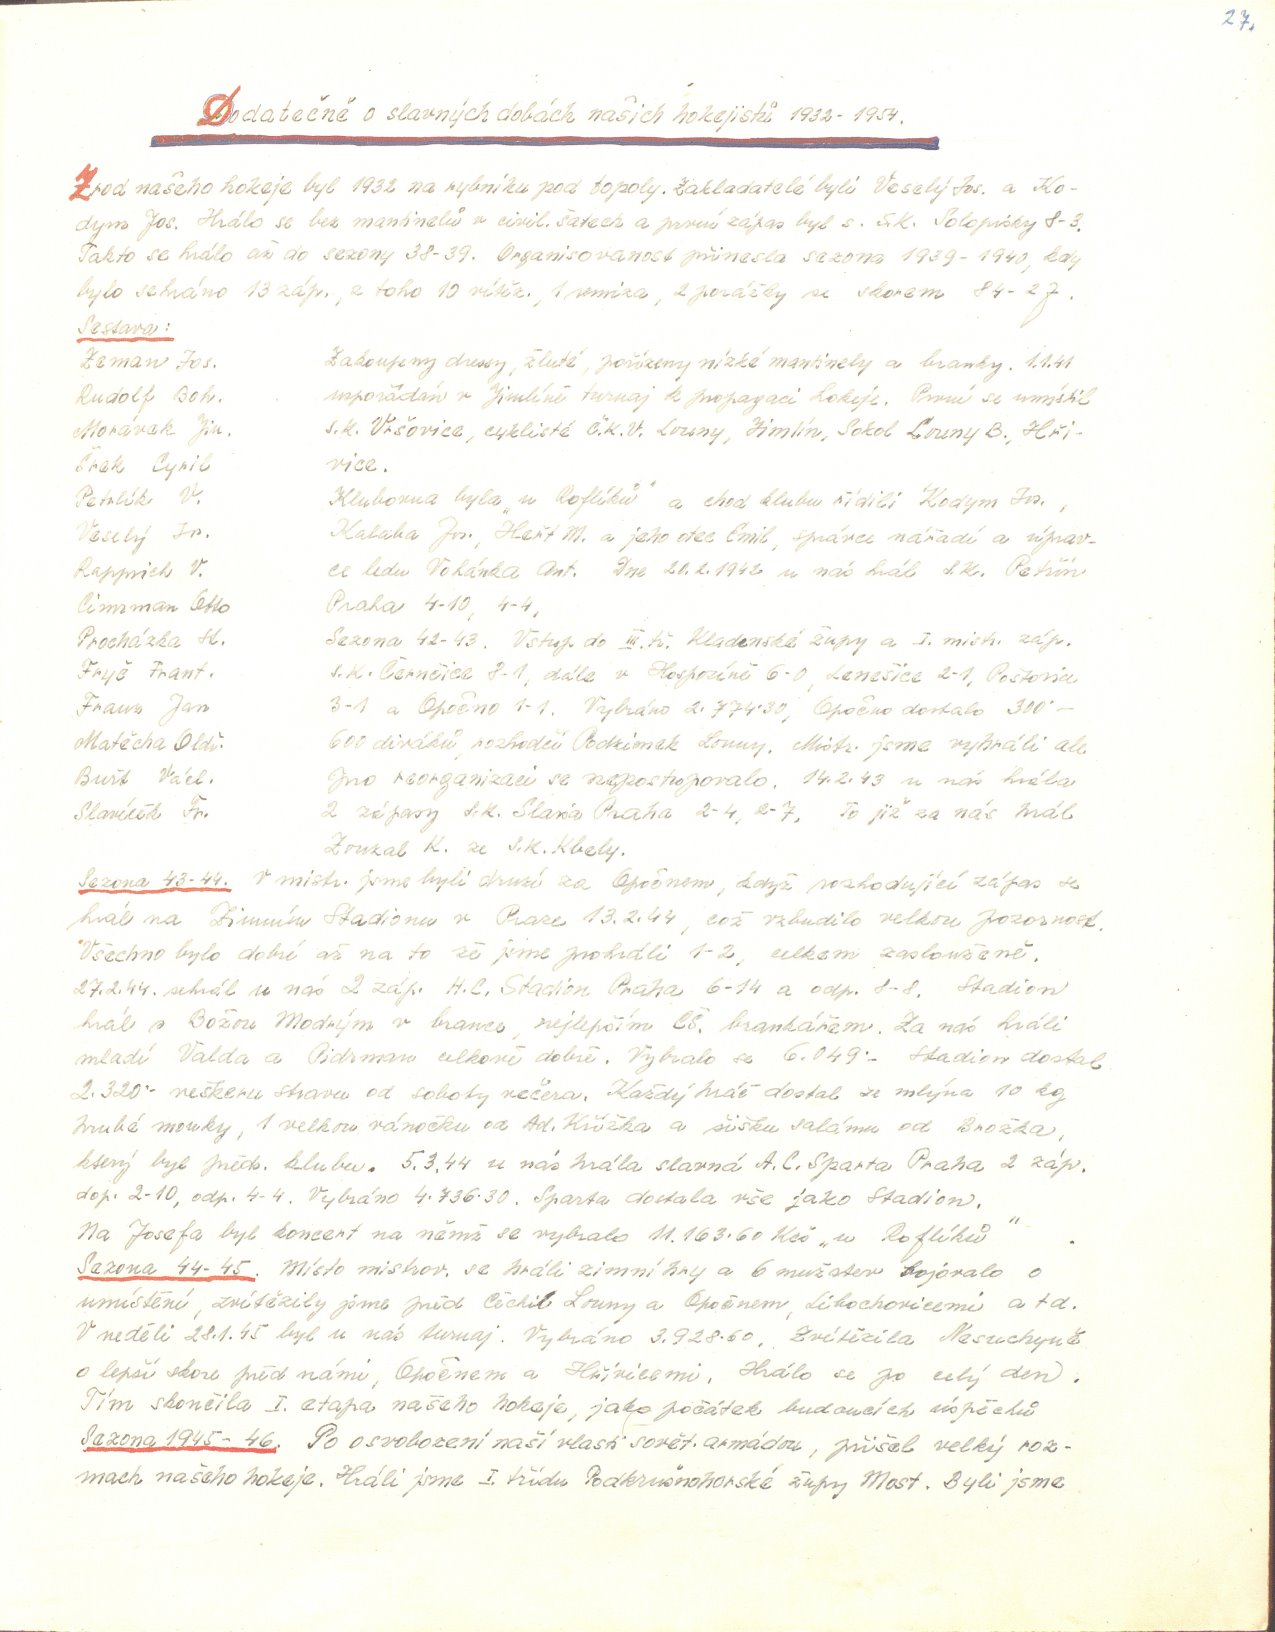 27.
Dodatečně o slavných dobách našich hokejistů 1932 - 1954.
Zrod našeho hokeje byl 1932 na rybníku pod topoly. Zakladatelé byli Veselý Jos. a Ko-
dym Jos. Hrálo se bez mantinelů v civil. šatech a první zápas byl s. S.K. Solopysky 8-3.
Takto se hrálo až do sezony 38-39. Organisovanost přinesla sezona 1939 - 1940, kdy
bylo sehráno 13 záp., z toho 10 vítěz., 1 remiza, 2 porážky se skorem 84 - 27.
Sestava:
Zeman Jos.
Rudolf Boh.
Moravek Jin.
Črek Cyril
Petrlík V.
Veselý Jos.
Rapprich V.
Cimrman Otto
Procházka St.
Fryč Frant.
Franz Jan
Matěcha Oldř.
Bušt Václ.
Slavíček Fr.
Zakoupeny dressy, žluté, pořízeny nízké mantinely a branky. 1.1.41
uspořádán v Jimlíně turnaj k propagaci hokeje. První se umístil
S.K. Vršovice, cyklisté Č.K.V. Louny, Jimlín, Sokol Louny B., Hři-
vice.
Klubovna byla „u Roflíků" a chod klubu řídili Kodym Jos.,
Kalaba Jos., Heřt M. a jeho otec Emil, správce nářadí a úprav-
ce ledu Vohánka Ant. Dne 20.2.1942 u nás hrál S.K. Petřín
Praha 4-10, 4-4,
Sezona 42-43. Vstup do III. tř. Kladenské župy a I. mistr. záp.
S.K. Černčice 8-1, dále v Hospozíně 6-0, Lenešice 2-1, Postoloprty
3-1 a Opočno 1-1. Vybráno 2.774.30, Opočno dostalo 300.-
600 diváků, rozhodčí Podzimek Louny. Mistr. jsme vyhráli ale
pro reorganizaci se nepostupovalo. 14.2.43 u nás hrála
2 zápasy S.K. Slavia Praha 2-4, 2-7. To již za nás hrál
Zouzal K. ze S.K. Kbely.
Sezona 43-44. V mistr. jsme byli druzí za Opočnem, když rozhodující zápas se
hrál na Zimním Stadionu v Praze 13.2.44, což vzbudilo velkou pozornost.
Všechno bylo dobré až na to že jsme prohráli 1-2, celkem zaslouženě.
27.2.44. sehrál u nás 2 záp. H.C. Stadion Praha 6-14 a odp. 8-8. Stadion
hrál s Božou Modrým v brance, nejlepším čš. brankářem. Za nás hráli
mladí Valda a Pidrman celkově dobře. Vybralo se 6.049.- Stadion dostal
2.320.- veškeru stravu od soboty večera. Každý hráč dostal ze mlýna 10 kg
hrubé mouky, 1 velkou vánočku od Ad. Křížka a šišku salámu od Brožka,
který byl před. klubu. 5.3.44 u nás hrála slavná A.C. Sparta Praha 2 záp.
dop. 2-10, odp. 4-4. Vybráno 4.736.30. Sparta dostala vše jako Stadion.
Na Josefa byl koncert na němž se vybralo 11.163.60 Kčs „u Roflíků".
Sezona 44-45. Místo mistrov. se hráli zimní hry a 6 mužstev bojovalo o
umístění, zvítězily jsme před Čechií Louny a Opočnem, Libochovicemi a td.
V neděli 28.1.45 byl u nás turnaj. Vybráno 3.928.60. Zvítězila Nesuchyně
o lepší skore před námi, Opočnem a Hřivicemi. Hrálo se po celý den.
Tím skončila I. etapa našeho hokeje, jako počátek budoucích úspěchů
Sezona 1945 - 46. Po osvobození naší vlasti sovět. armádou, přišel velký roz-
mach našeho hokeje. Hráli jsme I. třídu Podkrušnohorské župy Most. Byli jsme